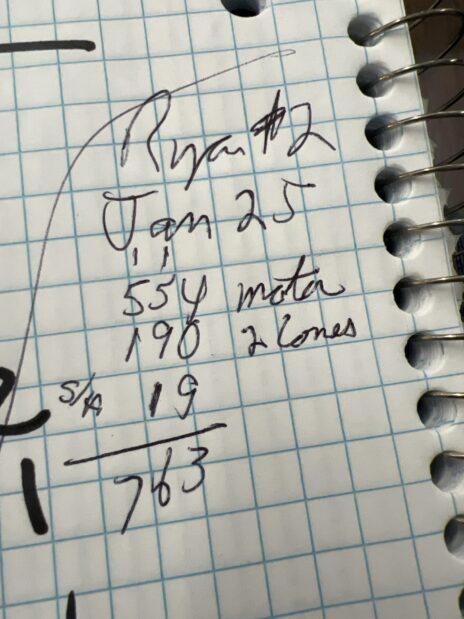 Ryan #2
Jan 25
554 motor
190 2 Cones
S/H 19
763